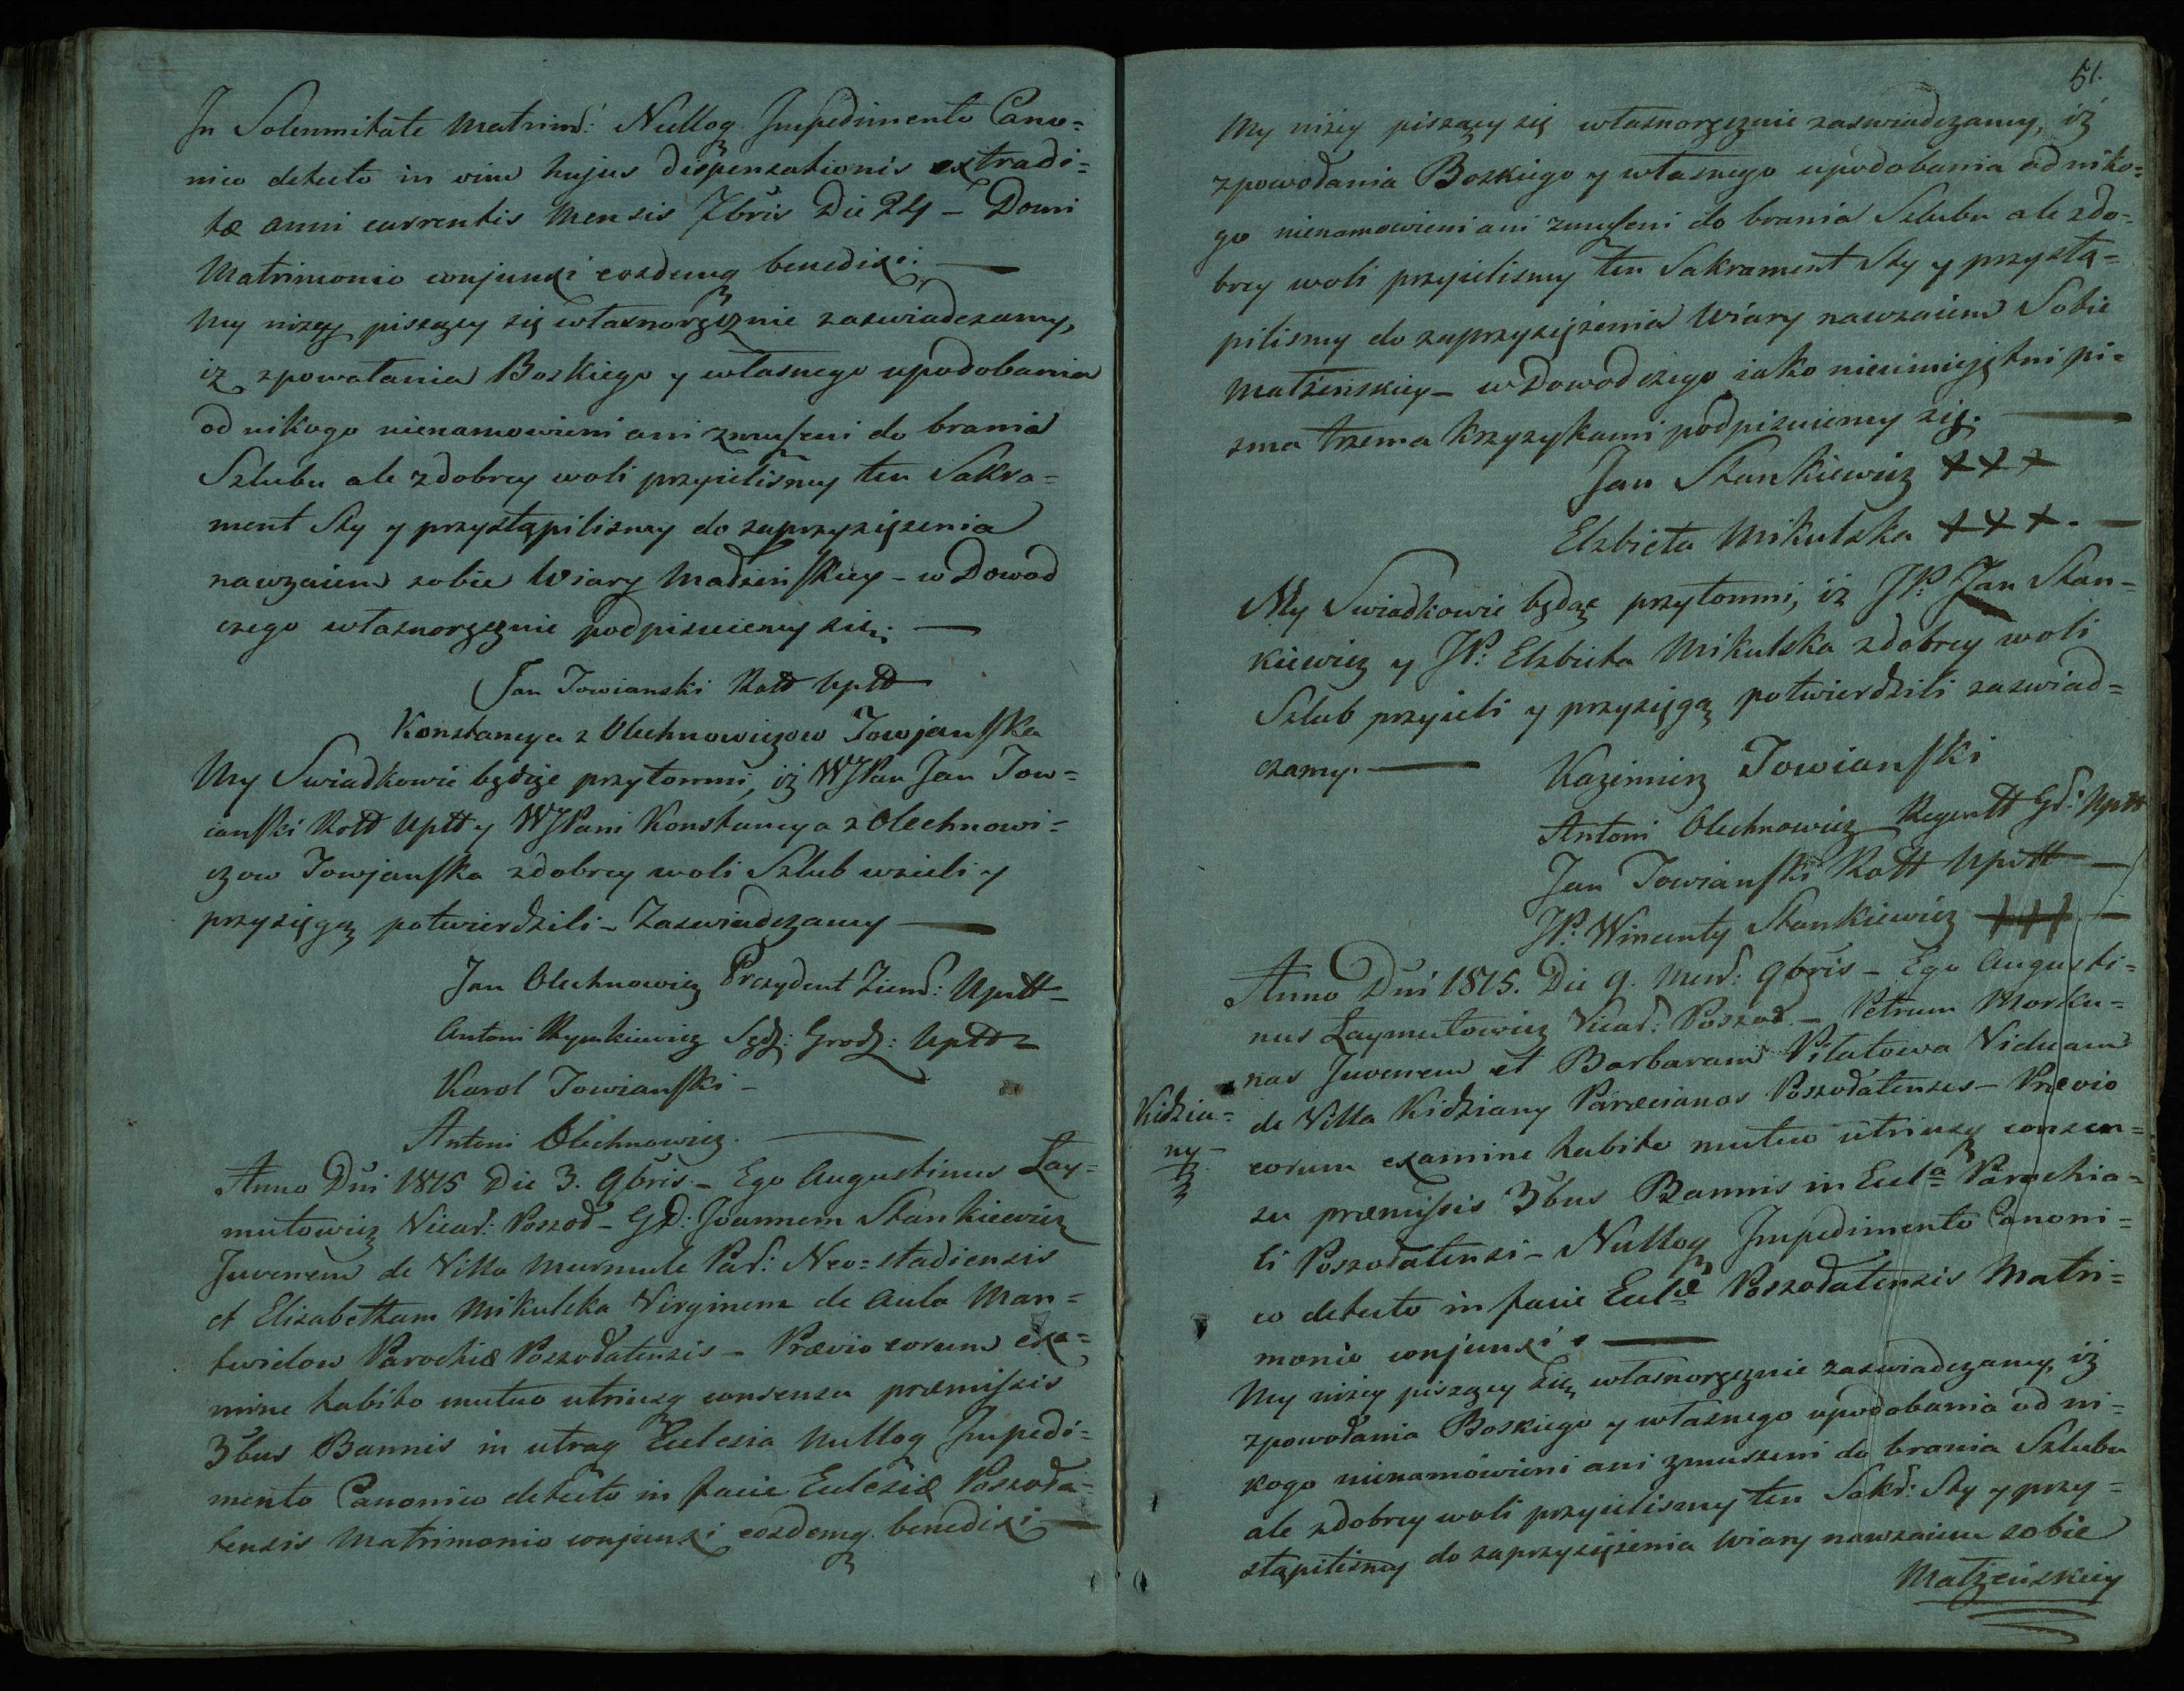 In Solennitate Matrimo: Nulloq Impedimento Cano=
nico detecto in vim hujus dispensationis extradi=
tæ anni currentis Mensis 7bris Die 24 – Domi
Matrimonio conjunxi eosdemq benedixi. —
My niżey piszący się własnoręcznie zaswiadczamy,
iz zpowołania Boskiego y własnego upodobania
od nikogo nienamowieni ani zmuszeni do brania
Szlubu ale zdobrey woli przyieliśmy ten Sakra=
ment Sty y przystąpilismy do zaprzysiężenia
nawzaiem sobie Wiary Małżeńskiey – w Dowod
czego własnoręcznie podpisuiemy się. —
Jan Towianski Rott Uptt
Konstancya z Olechnowiczow Towjanska
My Swiadkowie będąc przytomni, iż WJPan Jan Tow=
ianski Rott Uptt y WJPani Konstancya z Olechnowi=
czow Towjanska zdobrey woli Szlub wzieli y
przysięgą potwierdzili – Zaswiadczamy —
Jan Olechnowicz Prezydent Ziem: Uptt –
Antoni Rymkiewicz Sędz: Grodz: Uptt –
Karol Towianski –
Antoni Olechnowicz. —
Anno Dni 1815 Die 3. 9bris – Ego Augustinus Lay=
mutowicz Vicar: Poszod – GD: Joannem Stankiewicz
Juvenem de Villa Murmule Par: Neo=stadiensis
et Elisabetham Mikulska Virginem de Aula Man=
twidow Parochiæ Poszodatensis – Prævio eorum exa=
mine habito mutuo utriusq consensu præmissis
3bus Bannis in utraq Eclesia Nulloq Impedi=
mento Canonico detecto in facie Eclesiæ Poszoda=
tensis Matrimonio conjunxi eosdemq. benedixi —
51.
My niżey piszący się własnoręcznie zaswiadczamy, iż
zpowołania Boskiego y własnego upodobania od niko=
go nienamowieni ani zmuszeni do brania Szlubu ale zdo=
brey woli przyielismy ten Sakrament Sty y przystą=
pilismy do zaprzysiężenia Wiary nawzaiem Sobie
Małżenskiey – w Dowod czego iako nieumieiętni pi=
sma trzema krzyzykami podpisuiemy się. —
Jan Stankiewicz +++
Elzbieta Mikulska +++. —
My Swiadkowie będąc przytomni, iz JP: Jan Stan=
kiewicz y JP: Elzbieta Mikulska zdobrey woli
Szlub przyieli y przysięgą potwierdzili zaswiad=
czamy. —
Kazimierz Towianski
Antoni Olechnowicz Regentt Gd: Uptt
Jan Towianski Rott Uptt —
JP: Wincenty Stankiewicz +++ —
Anno Dni 1815. Die 9. Mens: 9bris – Ego Augusti=
nus Laymutowicz Vicar: Poszod. – Petrum Morku=
nas Juvenem et Barbaram Pilatowa Viduam
Kidzia=
ny –
de Villa Kidziany Paræcianos Poszodatenses – Prævio
eorum examine habito mutuo utriusq consen=
su præmissis 3bus Bannis in Ecclª Parochia=
li Poszodatensi – Nulloq Impedimento Canoni=
co detecto in facie Eclæ Poszodatensis Matri=
monio conjunxi. —
My niżey piszący się własnoręcznie zaswiadczamy, iż
zpowołania Boskiego y własnego upodobania od ni=
kogo nienamówieni ani zmuszeni do brania Szlubu
ale zdobrey woli przyielismy ten Sakr: Sty y przy=
stąpilismy do zaprzysiężenia Wiary nawzaiem sobie
Małżeńskiey